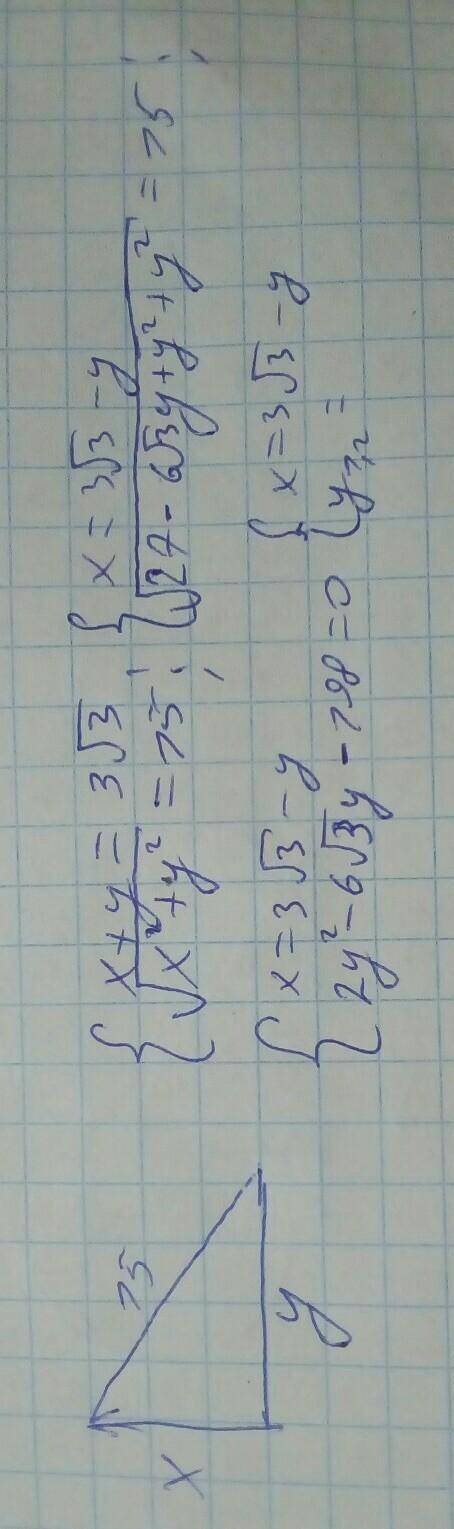 x
15
y
{ x+y = 3√3
{ √(x²+y²) = 15 ;
{ x = 3√3 - y
{ √(27 - 6√3y + y² + y²) = 15 ;
{ x = 3√3 - y
{ 2y² - 6√3y - 198 = 0
{ x = 3√3 - y
{ y₁,₂ =